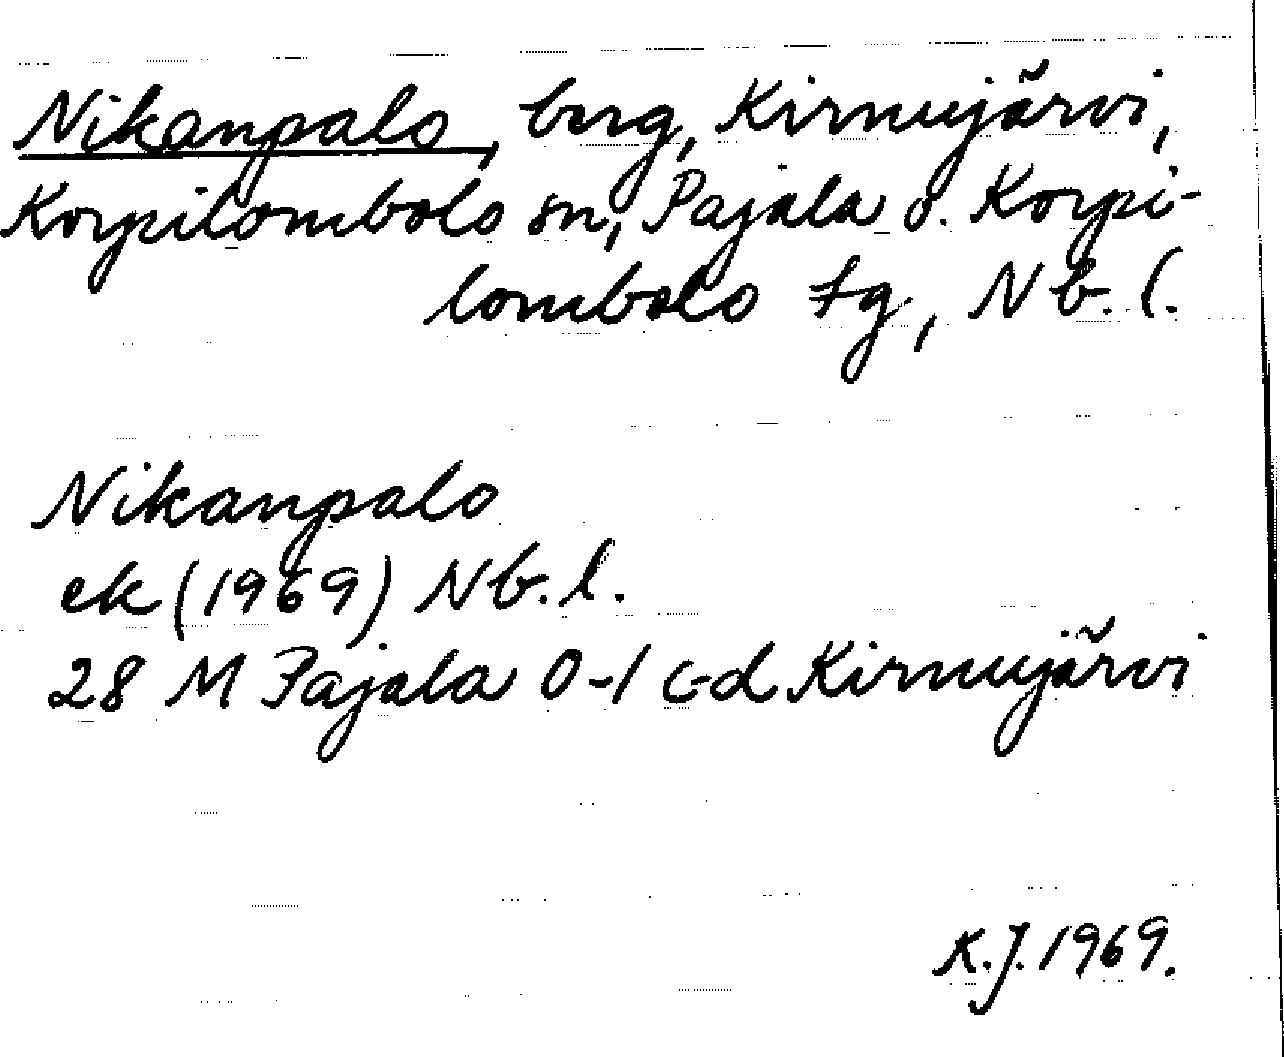 Nikanpalo, berg, Kirnujärvi,
Korpilombolo sn, Pajala o. Korpi-
lombolo tg, Nb. l.
Nikanpalo
ek (1969) Nb. l.
28 M Pajala 0-1 c-d Kirnujärvi
K.J. 1969.